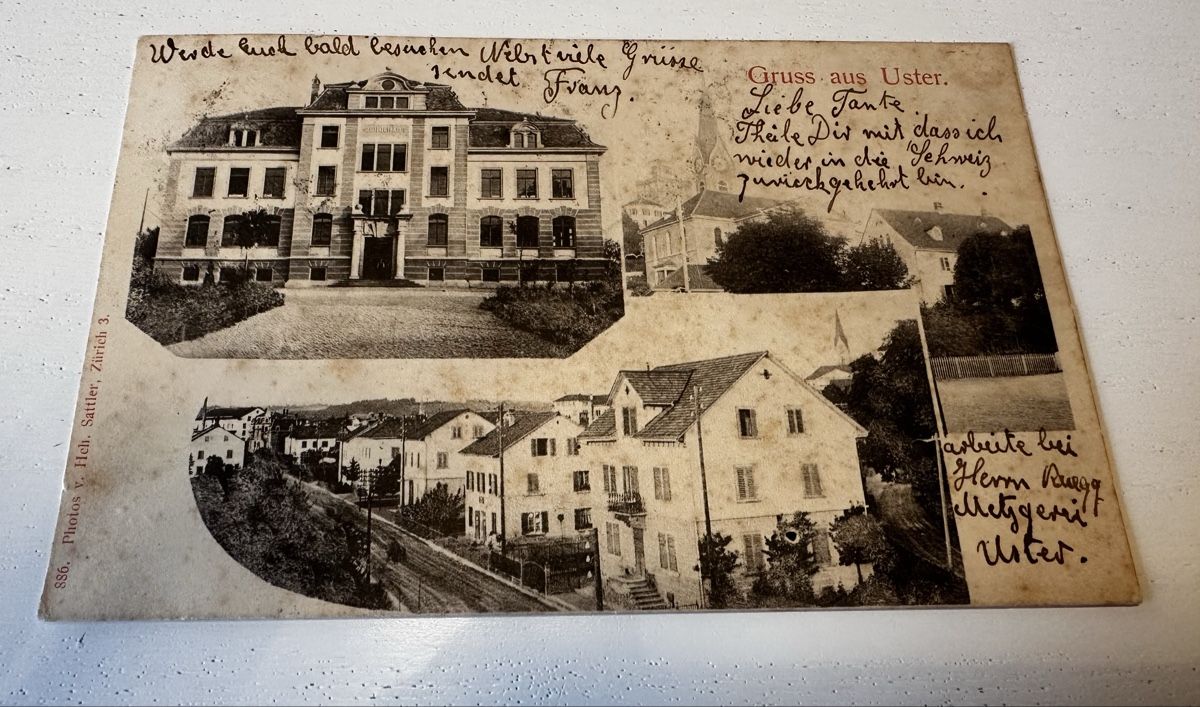 Gruss aus Uster.
Liebe Tante.
Theile Dir mit dass ich
wieder in die Schweiz
zurückgekehrt bin.
arbeite bei
Herrn Ruegg
Metzgerei
Uster.
Werde Euch bald besuchen Nebst viele Grüsse
sendet Franz.
886. Photos v. Hch. Sattler, Zürich 3.